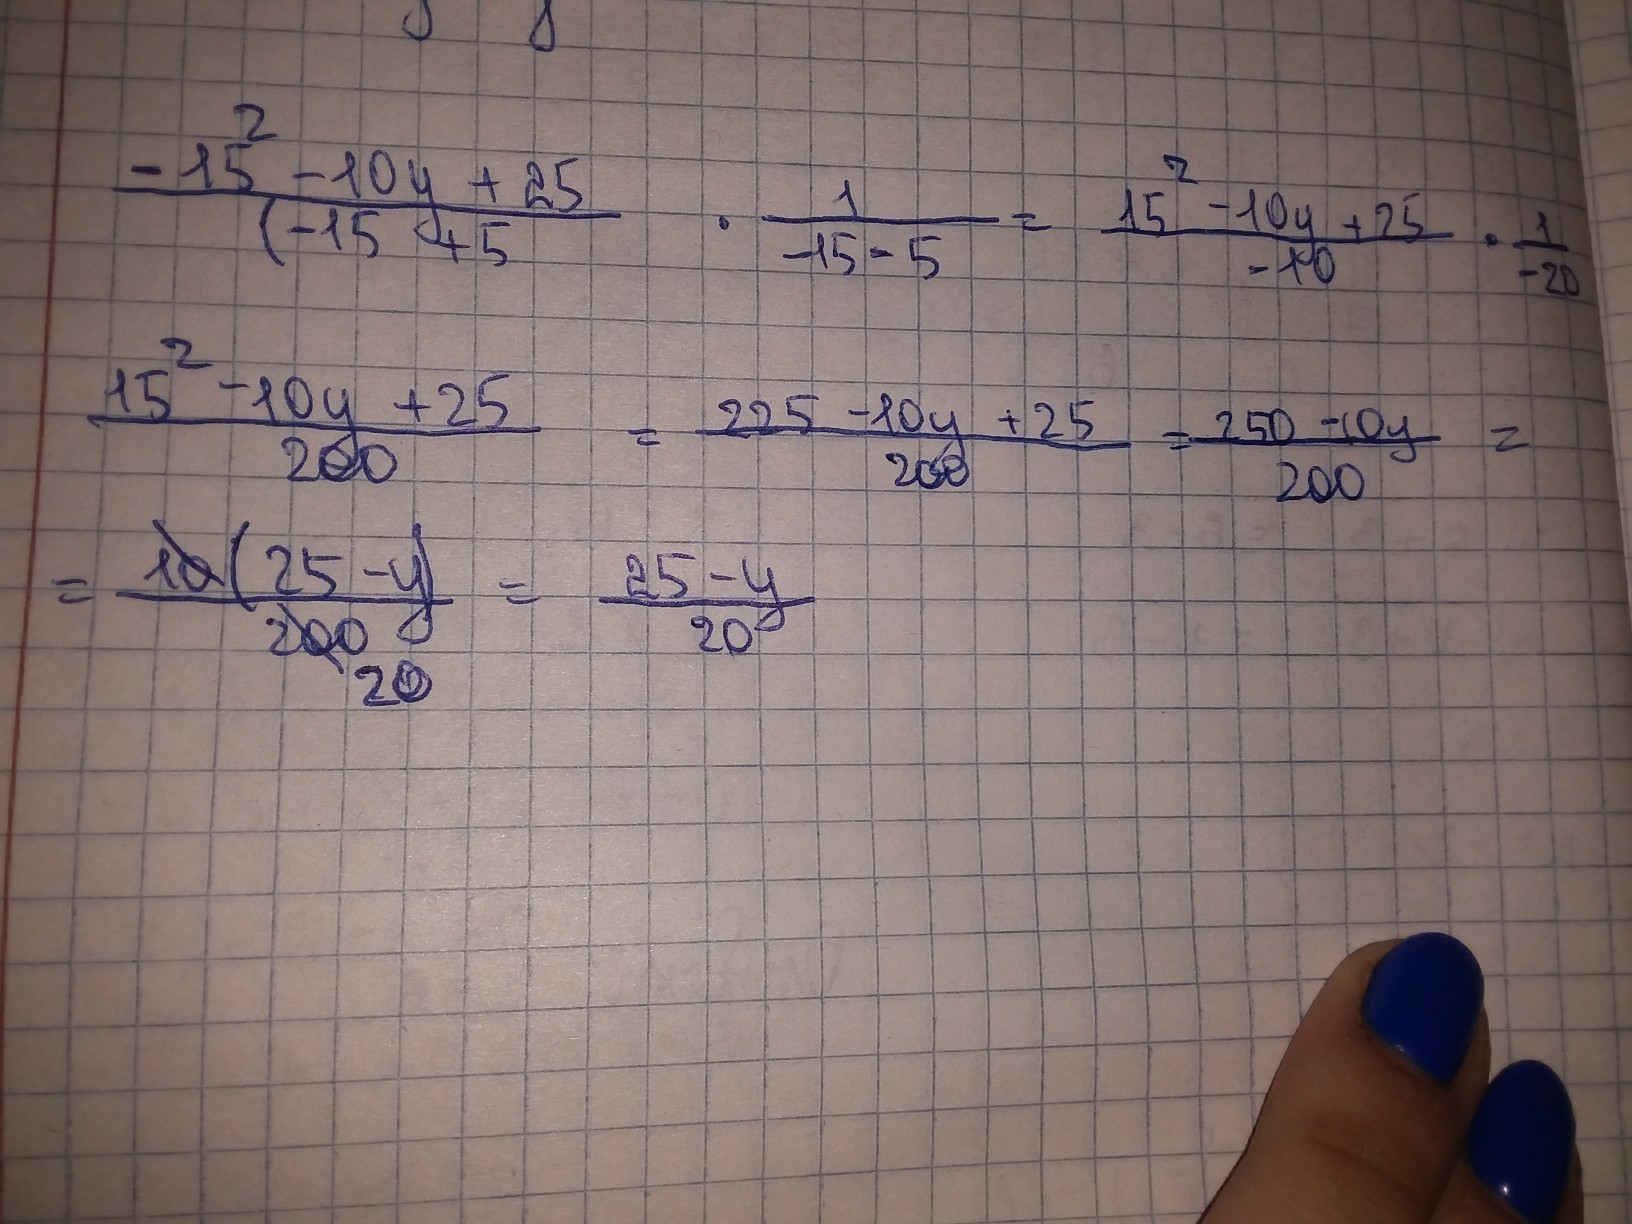 -15² -10y + 25 / (-15 + 5 · 1 / -15 - 5 = 15² -10y + 25 / -10 · 1 / -20
15² -10y + 25 / 200 = 225 -10y + 25 / 200 = 250 -10y / 200 =
= 10(25 - y) / 200 20 = 25 - y / 20